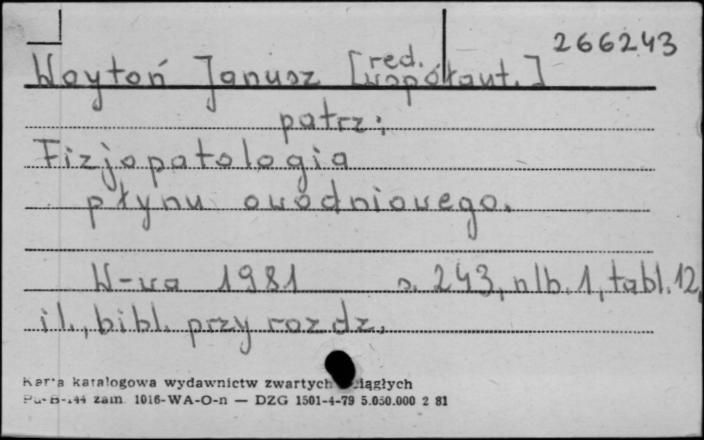 266243
Woytoń Janusz [red. współaut.]
patrz:
Fizjopatologia
płynu owodniowego.
W-wa 1981 s. 243, nlb. 1, tabl. 12,
il., bibl. przy rozdz.
Karta katalogowa wydawnictw zwartych ciągłych
Pu-B-144 zam. 1016-WA-O-n — DZG 1501-4-79 5.050.000 2 81